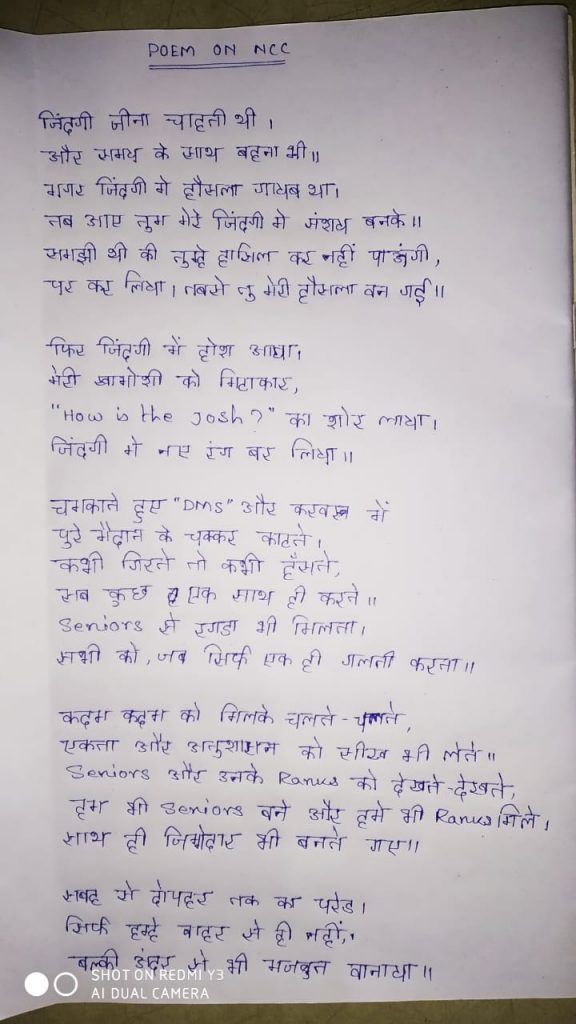 POEM ON NCC
जिंदगी जीना चाहती थी ।
और समय के साथ बहना भी ॥
मगर जिंदगी मे हौसला गायब था ।
तब आए तुम मेरे जिंदगी मे संशय बनके ॥
समझी थी की तुम्हे हासिल कर नहीं पाऊंगी ,
पर कर लिया । तबसे तु मेरी हौसला बन गई ॥
फिर जिंदगी में होश आया ।
मेरी खामोशी को मिटाकार ,
"How is the Josh ?" का शोर लाया ।
जिंदगी मे नए रंग बर लिया ॥
चमकाते हुए "DMS" और में
पुरे मैदान के चक्कर काटते ।
कभी गिरते तो कभी हँसते ,
सब कुछ एक साथ ही करते ॥
Seniors से रगडा भी मिलता ।
सभी को , जब सिर्फ एक ही गलती करता ॥
कदम कदम को मिलके चलते - चलते ,
एकता और अनुशासन को सीख भी लेते ॥
Seniors और उनके Ranks को देखते - देखते ,
हम भी Seniors बने और हमे भी Ranks मिले ।
साथ ही जिम्मेदार भी बनते गए ॥
सबह से दोपहर तक का परेड ।
सिर्फ हम्हे बाहर से ही नहीं ,
बल्की अंदर से भी मजबुत बानाया ॥
SHOT ON REDMI Y3
AI DUAL CAMERA